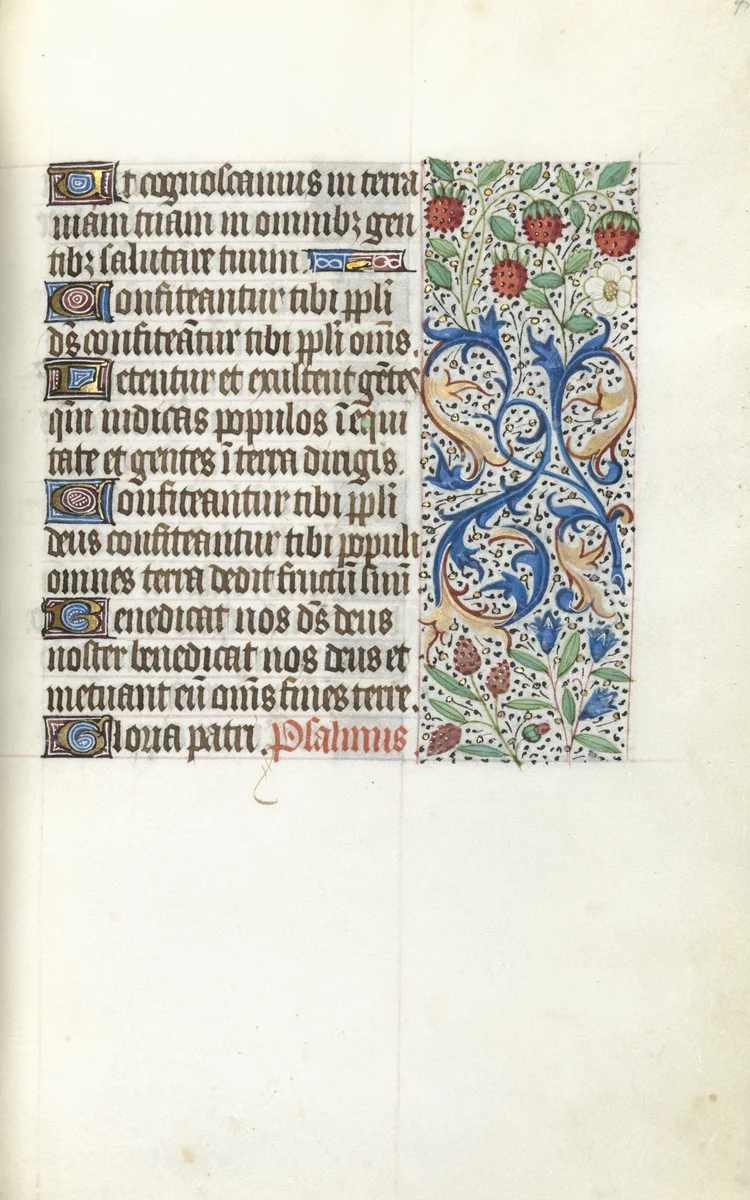 Ut cognoscamus in terra
viam tuam in omnibꝫ gen
tibꝫ salutare tuum.
Confiteantur tibi ppl̄i
ds̄ confiteãtur tibi ppl̄i om̄s.
Letentur et exultent gẽtes
qm̄ iudicas populos ĩ equi
tate et gentes ĩ terra dirigis.
Confiteantur tibi ppl̄i
deus confiteantur tibi populi
omnes terra dedit fructũ suũ
Benedicat nos ds̄ deus
noster benedicat nos deus et
metuant eũ om̄s fines terre.
Gloria patri. Psalmus.